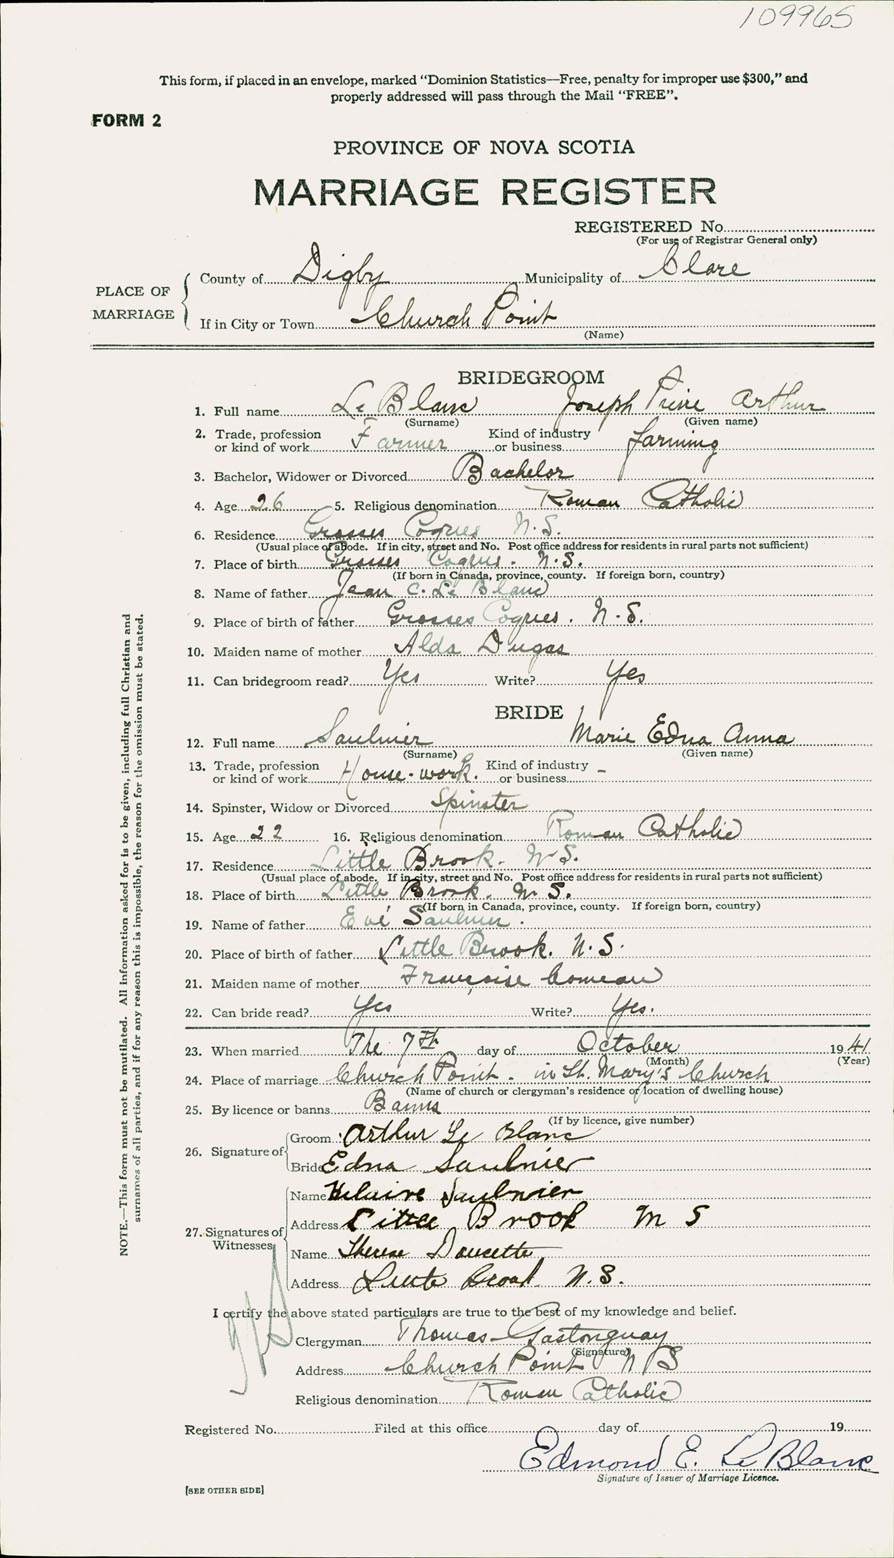 109965
This form, if placed in an envelope, marked “Dominion Statistics—Free, penalty for improper use $300,” and
properly addressed will pass through the Mail “FREE”.
FORM 2
PROVINCE OF NOVA SCOTIA
MARRIAGE REGISTER
REGISTERED No.
(For use of Registrar General only)
PLACE OF MARRIAGE
County of Digby Municipality of Clare
If in City or Town Church Point
(Name)
BRIDEGROOM
1. Full name Le Blanc Joseph Arthur
(Surname) (Given name)
2. Trade, profession or kind of work Farmer Kind of industry or business farming
3. Bachelor, Widower or Divorced Bachelor
4. Age 26 5. Religious denomination Roman Catholic
6. Residence Grosses Coques N.S.
(Usual place of abode. If in city, street and No. Post office address for residents in rural parts not sufficient)
7. Place of birth Grosses Coques. N.S.
(If born in Canada, province, county. If foreign born, country)
8. Name of father Jean C. Le Blanc
9. Place of birth of father Grosses Coques. N.S.
10. Maiden name of mother Alda Dugas
11. Can bridegroom read? Yes Write? Yes
BRIDE
12. Full name Saulnier Marie Edna Anna
(Surname) (Given name)
13. Trade, profession or kind of work House-work. Kind of industry or business –
14. Spinster, Widow or Divorced Spinster
15. Age 22 16. Religious denomination Roman Catholic
17. Residence Little Brook. N.S.
(Usual place of abode. If in city, street and No. Post office address for residents in rural parts not sufficient)
18. Place of birth Little Brook. N.S.
(If born in Canada, province, county. If foreign born, country)
19. Name of father Saulnier.
20. Place of birth of father Little Brook. N.S.
21. Maiden name of mother Françoise Comeau
22. Can bride read? Yes Write? Yes.
23. When married The 7th day of October 1941
(Month) (Year)
24. Place of marriage Church Point. in St. Mary's Church
(Name of church or clergyman's residence or location of dwelling house)
25. By licence or banns Banns
(If by licence, give number)
26. Signature of Groom Arthur Le Blanc
Bride Edna Saulnier
27. Signatures of Witnesses Name Hilaire Saulnier
Address Little Brook N S
Name Therese Doucette
Address Little Brook N.S.
I certify the above stated particulars are true to the best of my knowledge and belief.
Clergyman Thomas Gastonguay
(Signature)
Address Church Point N S
Religious denomination Roman Catholic
Registered No. Filed at this office day of 19
Edmond E. Le Blanc
Signature of Issuer of Marriage Licence.
[SEE OTHER SIDE]
NOTE.—This form must not be mutilated. All information asked for is to be given, including full Christian and
surnames of all parties, and if for any reason this is impossible, the reason for the omission must be stated.